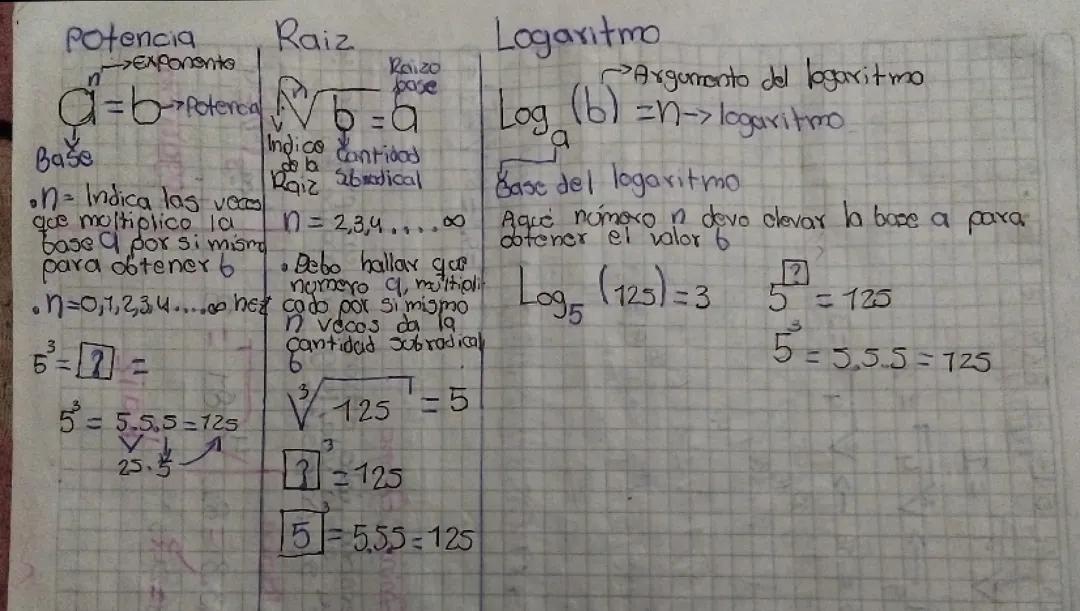 Potencia
n→Exponente
a = b→Potencia
Base
•n= Indica las veces
que moltiplico la
base a por si mismo
para obtener b
•n=0,1,2,3,4.....∞
5³=[?]=
5³= 5.5.5=125
25.5
Raiz
Raizo
base
n√b = a
Indice
de la
Raiz
Cantidad
Subradical
n= 2,3,4....∞
•Debo hallar que
número a, multipli
cado por si mismo
n veces da la
cantidad subradical
b
³√125 = 5
[?]³=125
[5]³=5.5.5=125
Logaritmo
→Argumento del logaritmo
Log a (b) =n→logaritmo
Base del logaritmo
Aqué número n devo elevar la base a para
obtener el valor b
Log₅ (125)=3
5[?] = 125
5³ = 5.5.5 = 125